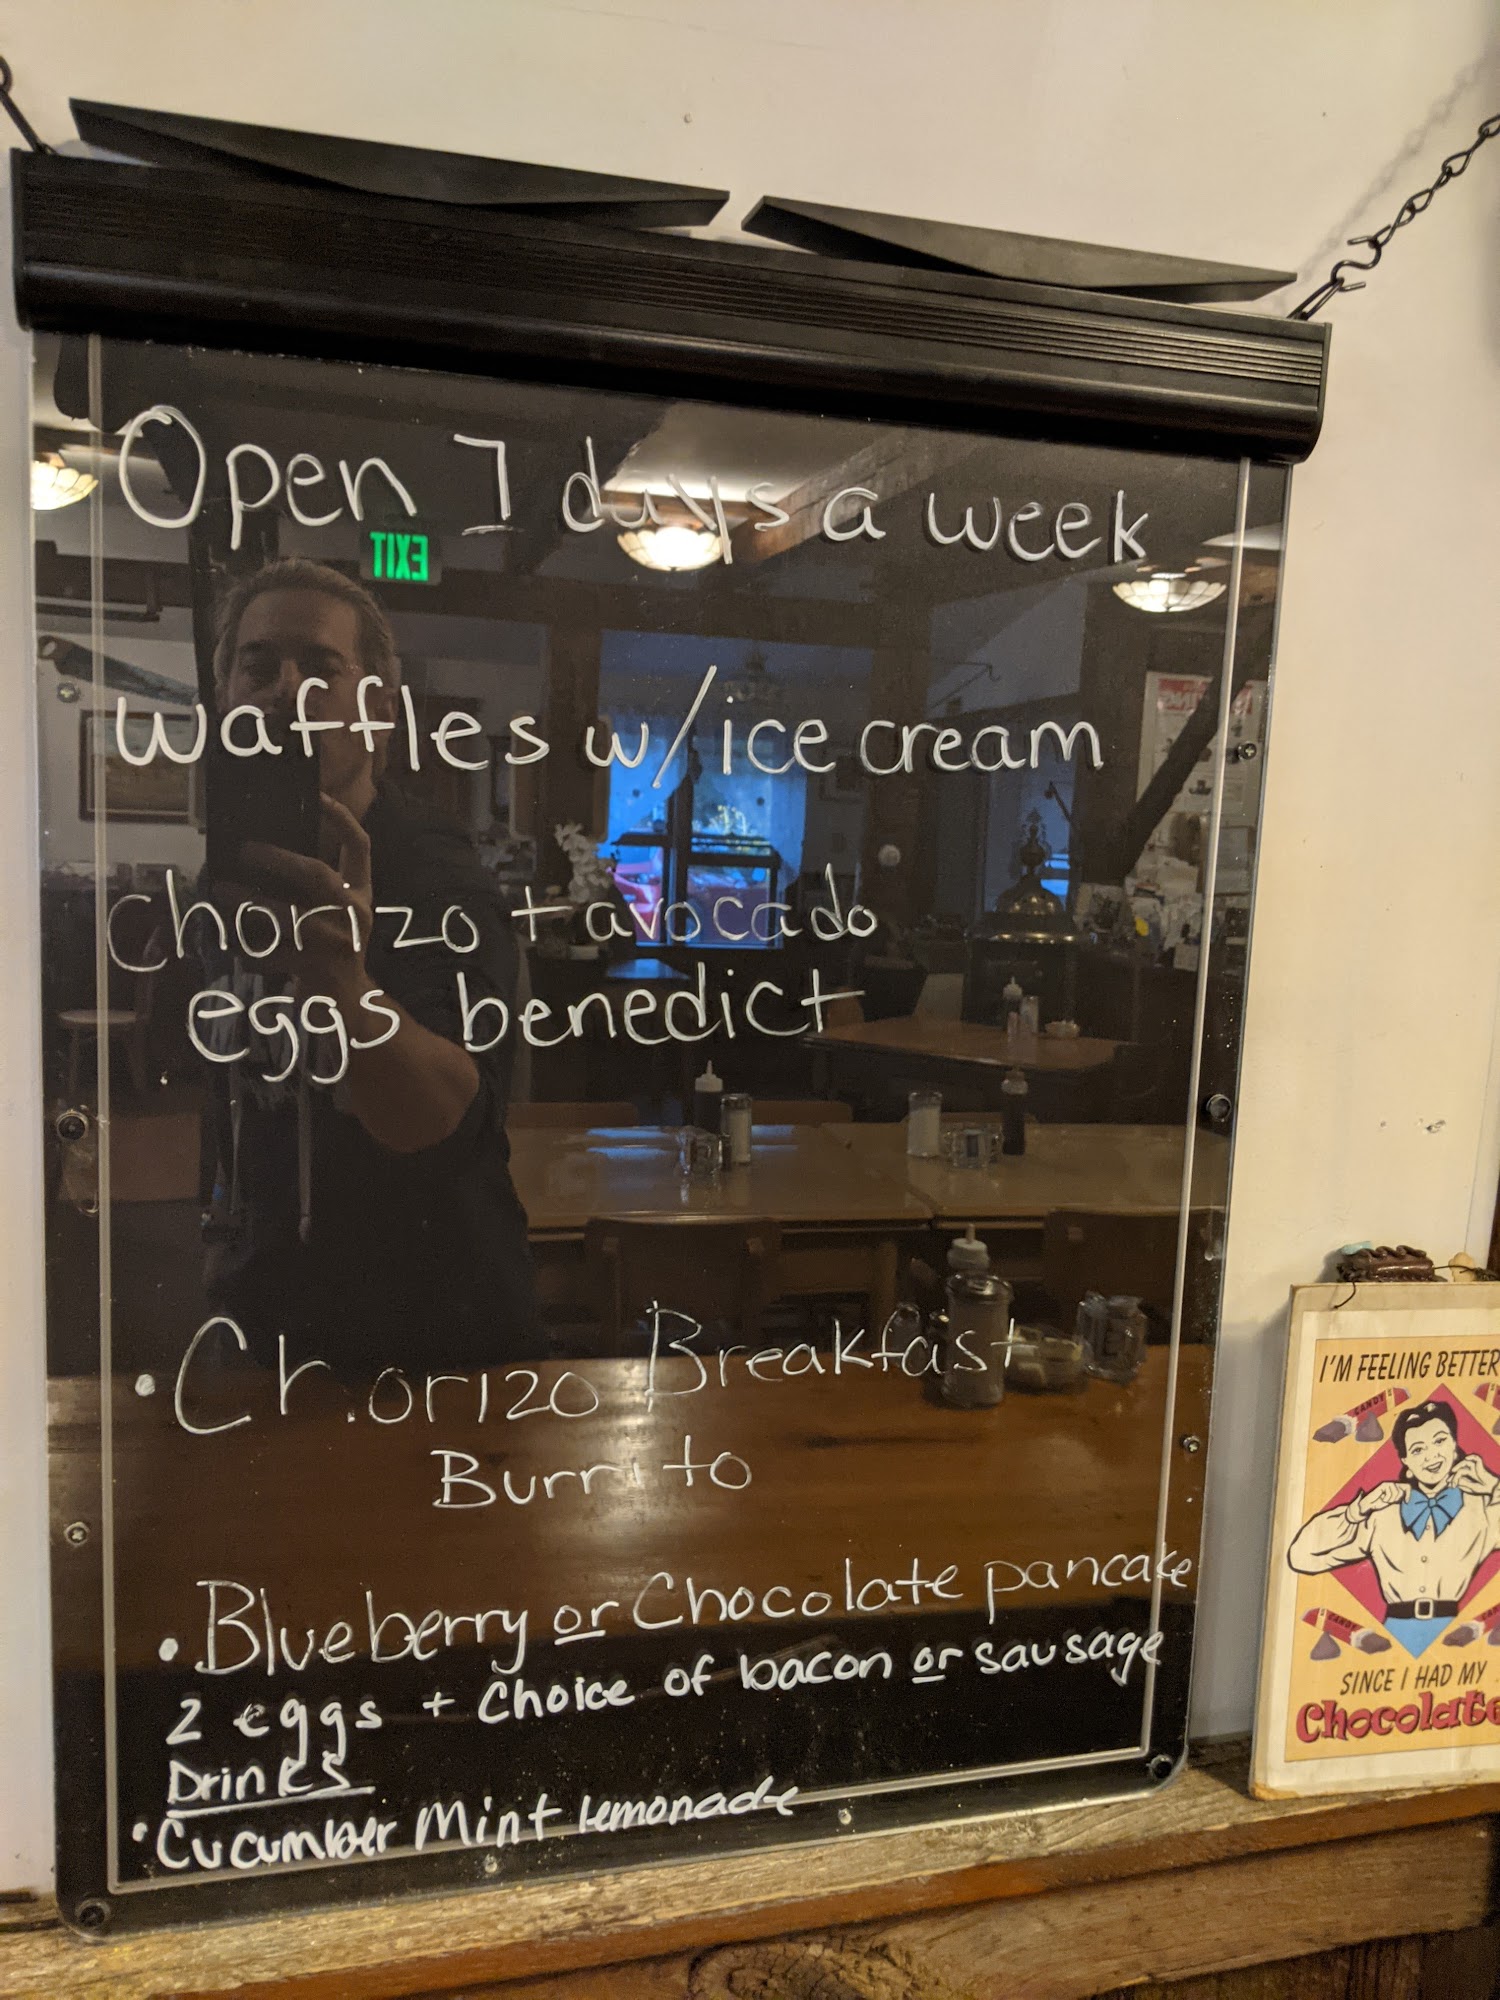 Open 7 days a week
EXIT
waffles w/ ice cream
chorizo + avocado
eggs benedict
• Chorizo Breakfast
Burrito
• Blueberry or Chocolate pancake
2 eggs + Choice of bacon or sausage
Drinks
• Cucumber Mint lemonade
I'M FEELING BETTER
CANDY
CANDY
SINCE I HAD MY
Chocolate